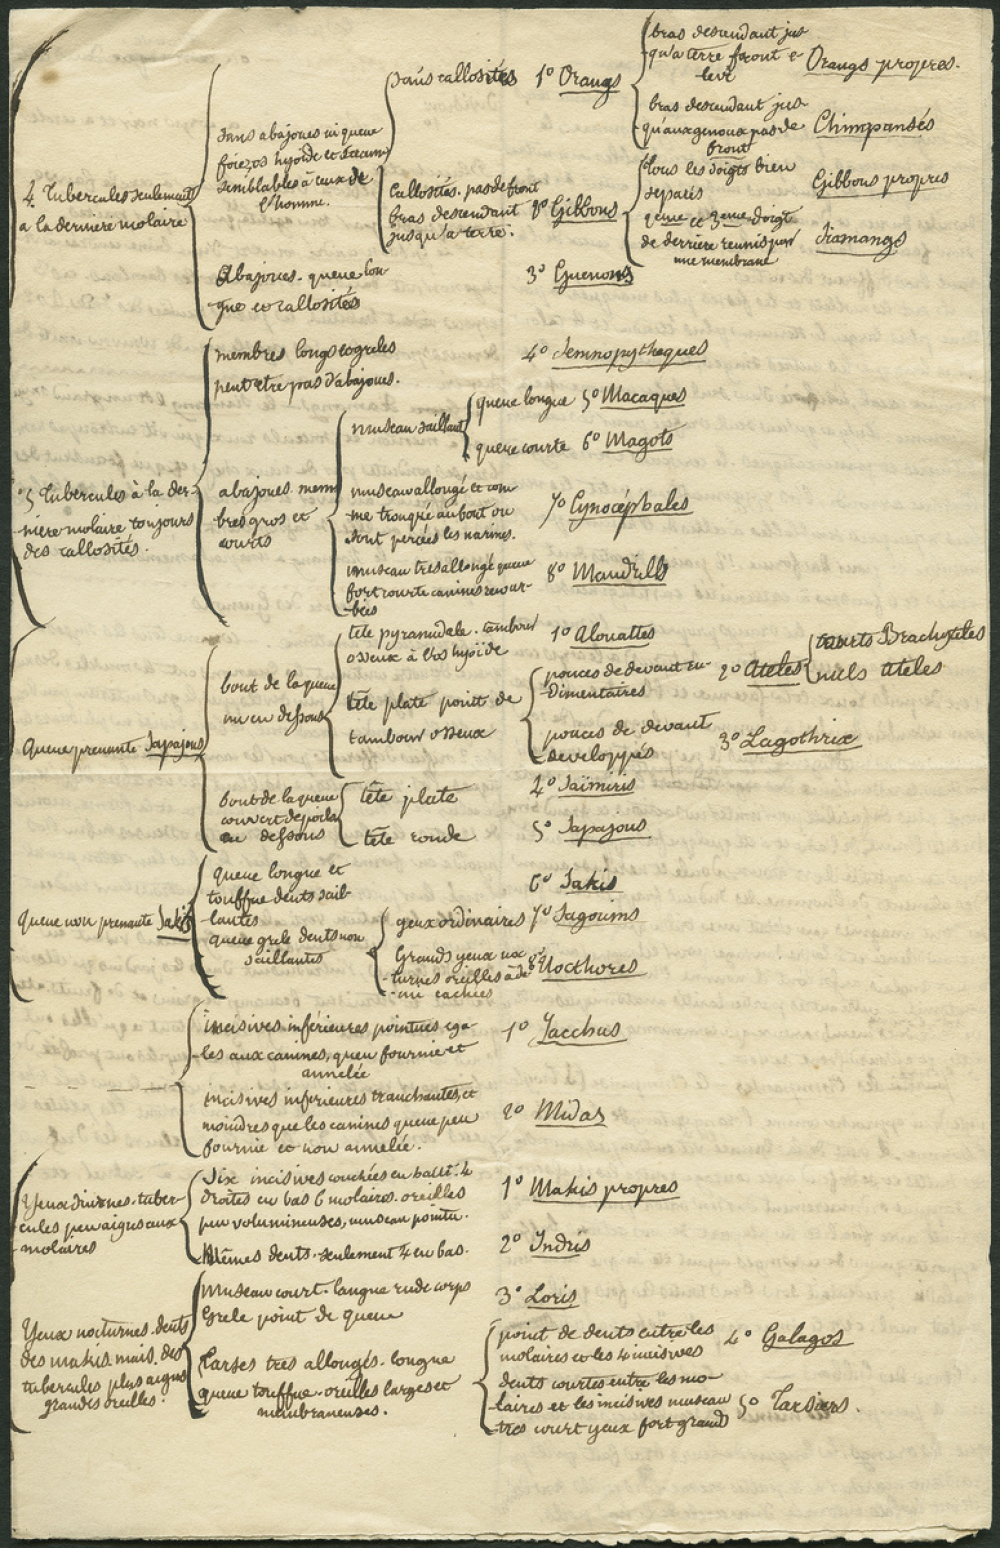 4 Tubercules seulement
a la derniere molaire
sans abajoues ni queue
foie, os hyoide et caecum
semblables à ceux de
l'homme.
sans callosités
1º Orangs
bras descendant jus
qu'a terre front e
levé
Orangs propres.
bras descendant jus
qu'aux genoux pas de
front
Chimpansés
Callosités. pas de front
bras descendant
jusqu'a terre.
2º Gibbons
tous les doigts bien
separés
Gibbons propres
2eme et 3eme doigt
de derriere reunis par
une membrane
Siamangs
Abajoues. queue lon-
gue et callosités
3º Guenons
5 Tubercules à la der-
niere molaire toujours
des callosités.
membres longs et greles
peut etre pas d'abajoues.
4º Semnopytheques
abajoues. mem
bres gros et
courts
museau saillant
queue longue 5º Macaques
queue courte 6º Magots
museau allongé et com
me tronqué au bout ou
sont percées les narines.
7º Cynocéphales
museau tres allongé queue
fort courte canines recour-
bées
8º Mandrills
Queue prenante Sapajous
bout de la queue
nu en dessous
tête pyramidale. tambour
osseux à l'os hyoide
1º Alouattes
tête plate point de
tambour osseux
pouces de devant ru-
dimentaires
2º Ateles
courts Brachyteles
nuls Ateles
pouces de devant
developpés
3º Lagothrix
bout de la queue
couvert de poils
en dessous
tête plate
4º Saïmiris
tête ronde
5º Sapajous
Queue non prenante Sakis
queue longue et
touffue dents sail-
lantes
6º Sakis
queue grele dents non
saillantes
yeux ordinaires 7º Sagouins
Grands yeux noc
turnes oreilles à de-
mi cachées
8º Nocthores
incisives inférieures pointues ega-
les aux canines, queu fournie et
annelée
1º Jacchus
incisives inferieures tranchantes, et
moindres que les canines queue peu
fournie et non annelée.
2º Midas
Yeux diurnes. tuber-
cules peu aigus aux
molaires
Six incisives couchées en bas et 4
droites en bas 6 molaires. oreilles
peu volumineuses, museau pointu.
1º Makis propres
Mêmes dents. seulement 4 en bas.
2º Indris
Yeux nocturnes. dents
des makis. mais. des
tubercules plus aigus
grandes oreilles.
Museau court. langue rude corps
Grele point de queue
3º Loris
Tarses tres allongés. longue
queue touffue. oreilles larges et
membraneuses.
point de dents entre les
molaires et les 4 incisives
4º Galagos
dents courtes entre les mo-
laires et les incisives museau
tres court yeux fort grands
5º Tarsiers.